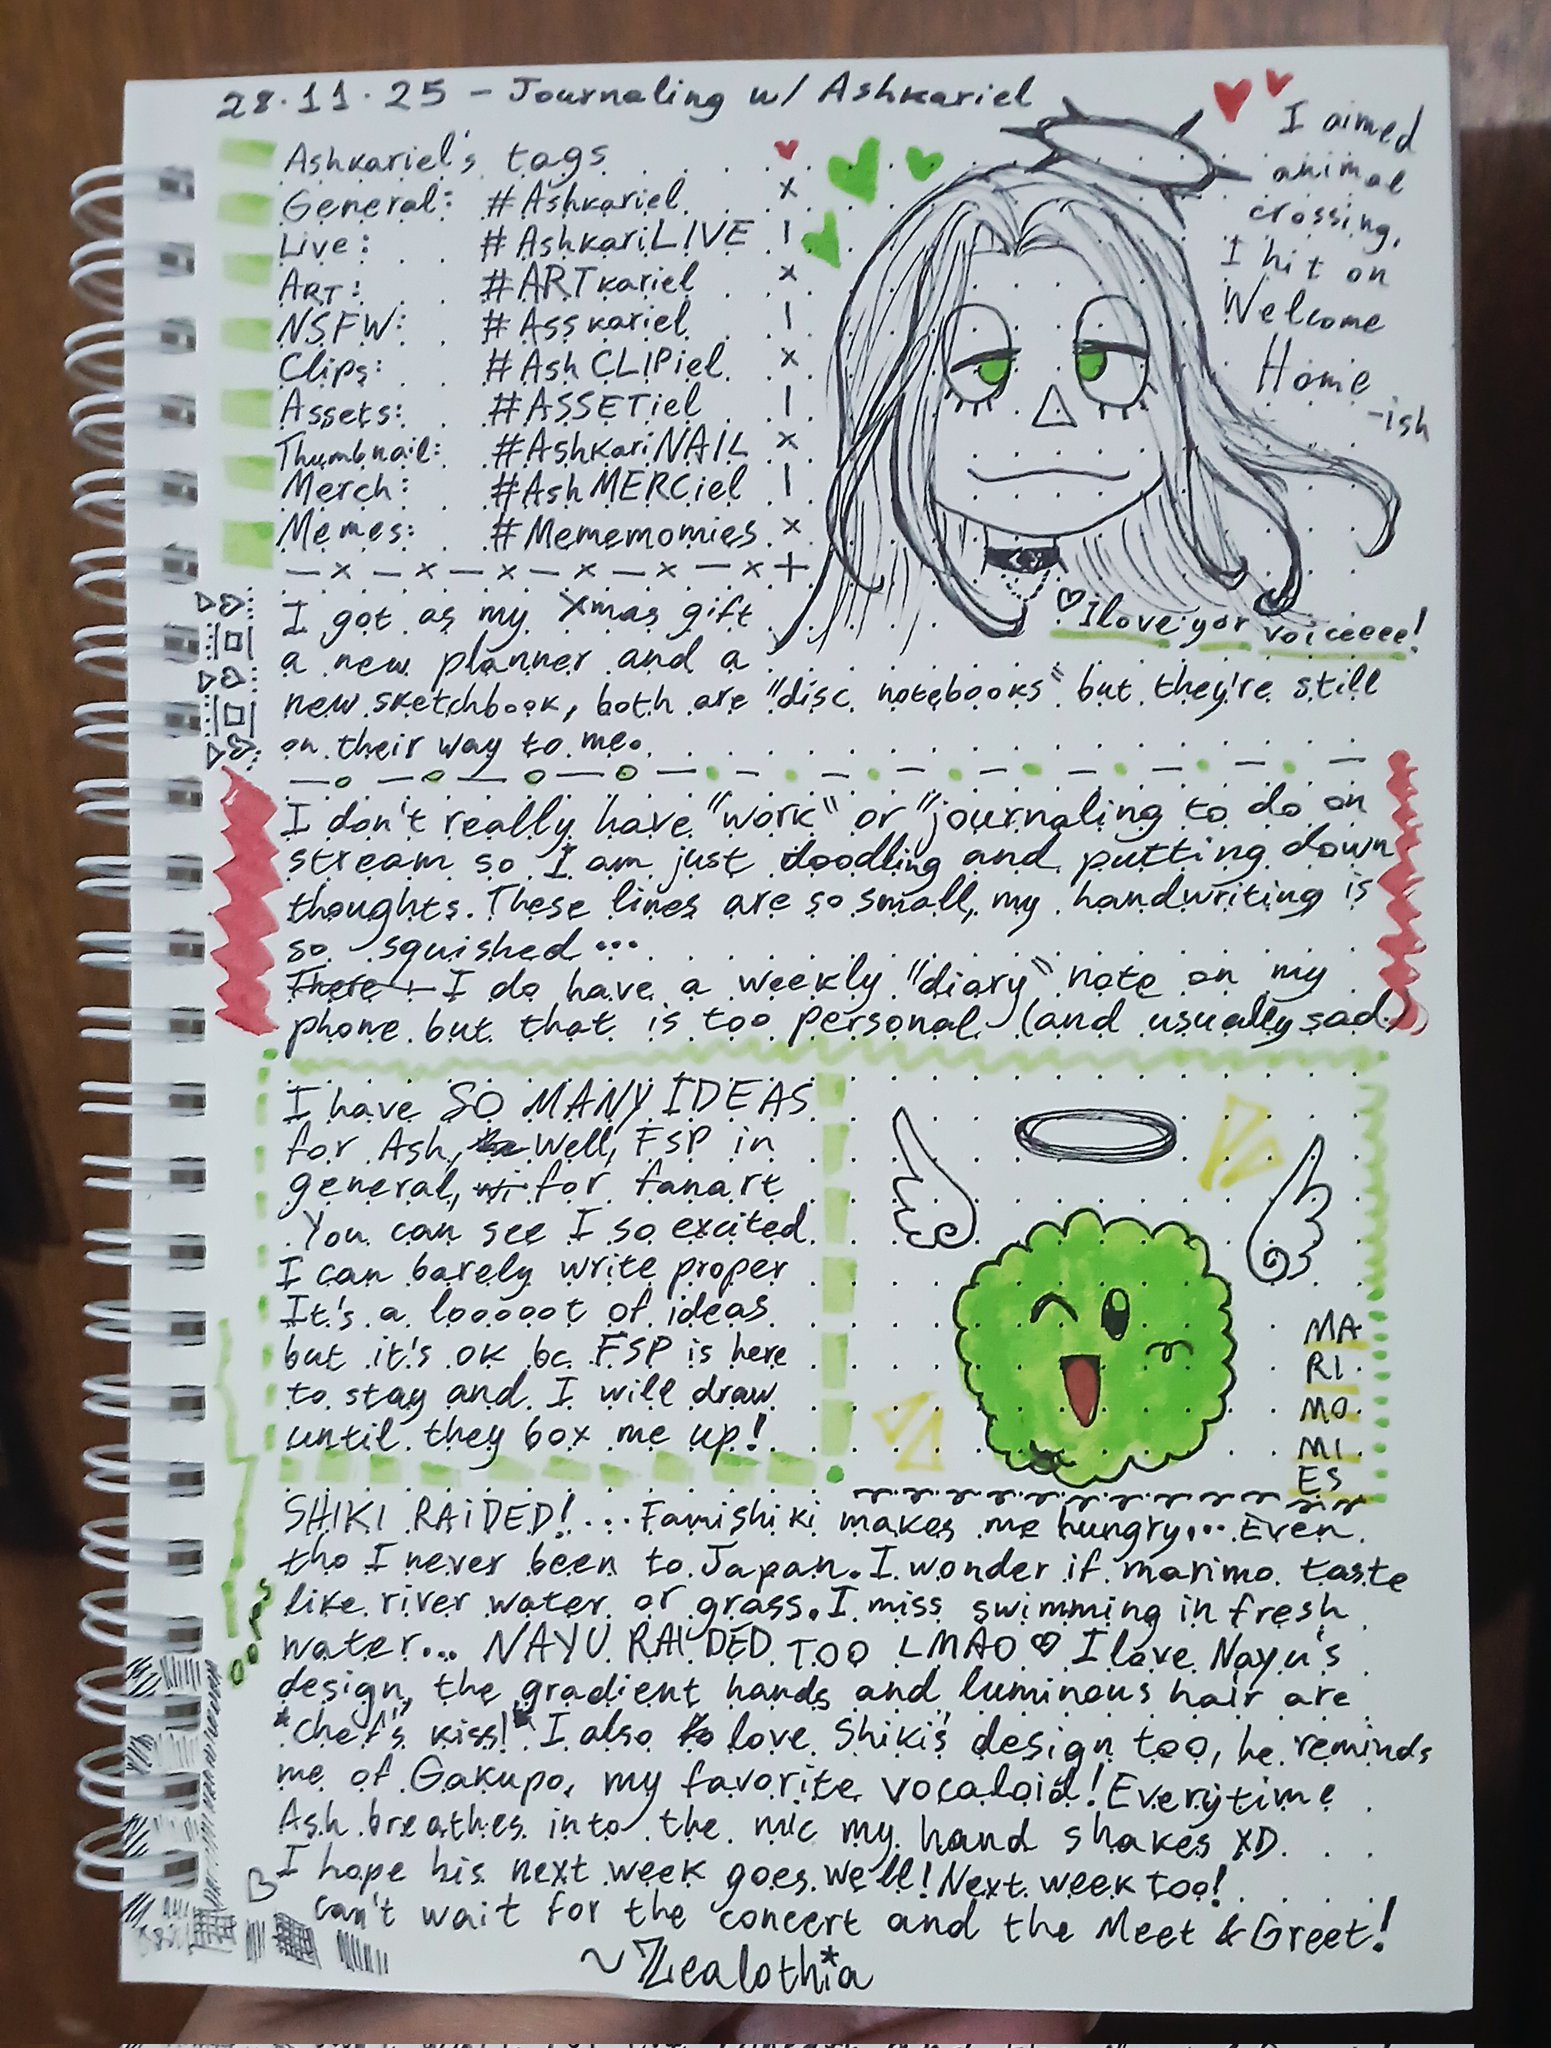 28.11.25 - Journaling w/ Ashkariel
Ashkariel's tags
General: #Ashkariel
Live: #AshkariLIVE
ART: #ARTkariel
NSFW: #Asskariel
Clips: #AshCLIPiel
Assets: #ASSETiel
Thumbnail: #AshkariNAIL
Merch: #AshMERCiel
Memes: #Mememomies
I aimed
animal
crossing,
I hit on
Welcome
Home
-ish
I love yor voiceeee!
I got as my Xmas gift
a new planner and a
new sketchbook, both are "disc notebooks" but they're still
on their way to me.
I don't really have "work" or "journaling to do on
stream so I am just doodling and putting down
thoughts. These lines are so small, my handwriting is
so squished...
There I do have a weekly "diary" note on my
phone but that is too personal (and usually sad)
I have SO MANY IDEAS
for Ash, Well, FSP in
general, for fanart
You can see I so excited
I can barely write proper
It's a looooot of ideas
but it's ok bc FSP is here
to stay and I will draw
until they box me up!
MA
RI
MO
MI
ES
SHIKI RAIDED!... Famishiki makes me hungry... Even
tho I never been to Japan. I wonder if marimo taste
like river water or grass. I miss swimming in fresh
water... NAYU RAIDED TOO LMAO I love Nayu's
design, the gradient hands and luminous hair are
*chef's kiss!* I also love Shiki's design too, he reminds
me of Gakupo, my favorite vocaloid! Everytime
Ash breathes into the mic my hand shakes XD
I hope his next week goes well! Next week too!
can't wait for the concert and the Meet & Greet!
~Zealothia